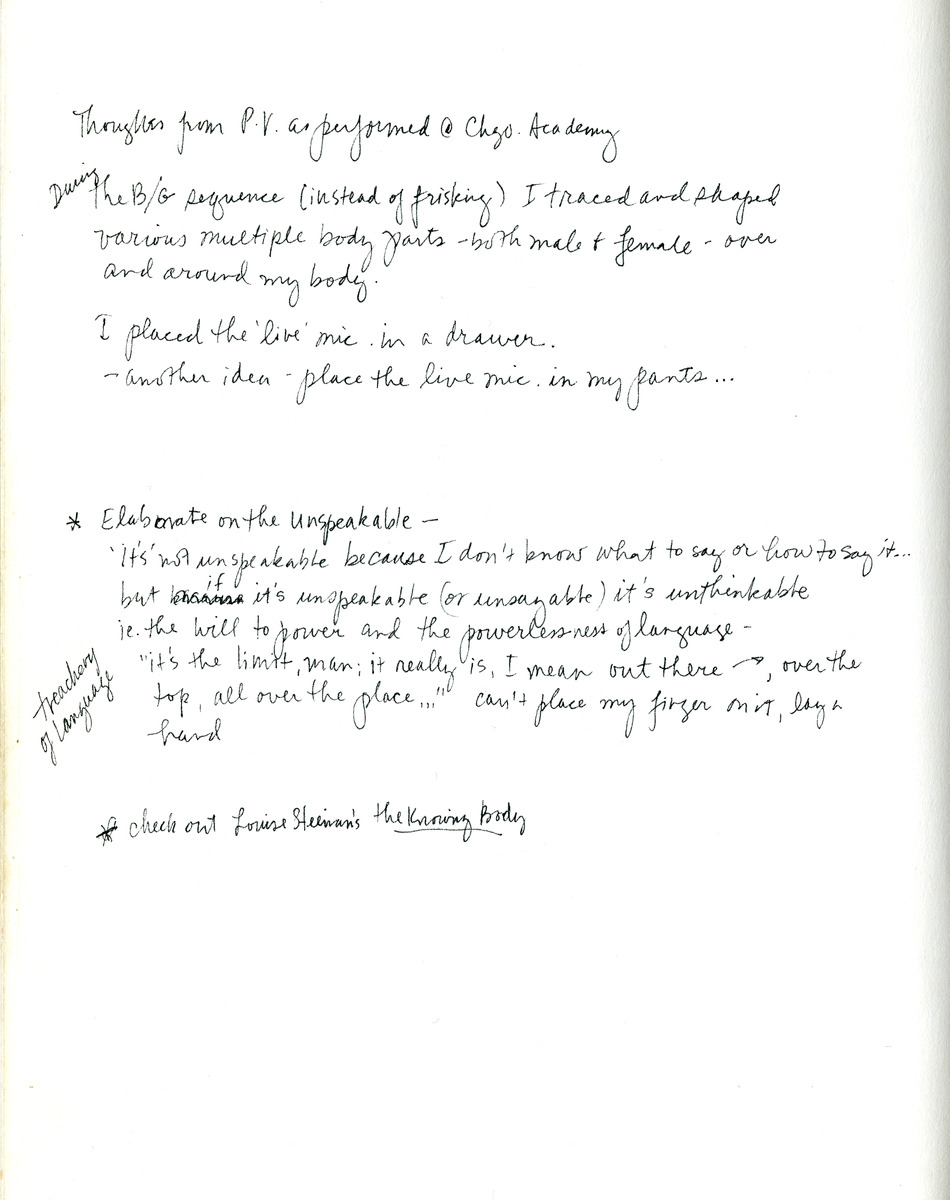 Thoughts from P.V. as performed @ Chgo. Academy
During
The B/G sequence (instead of frisking) I traced and shaped
various multiple body parts - both male & female - over
and around my body.
I placed the 'live' mic. in a drawer.
- another idea - place the live mic. in my pants...
* Elaborate on the unspeakable -
'it's' not unspeakable because I don't know what to say or how to say it...
but if it's unspeakable (or unsayable) it's unthinkable
ie. the will to power and the powerlessness of language -
"it's the limit, man; it really is, I mean out there →, over the
top, all over the place..." can't place my finger on it, lay a
hand
treachery
of language
* check out Louise Steinman's the Knowing Body